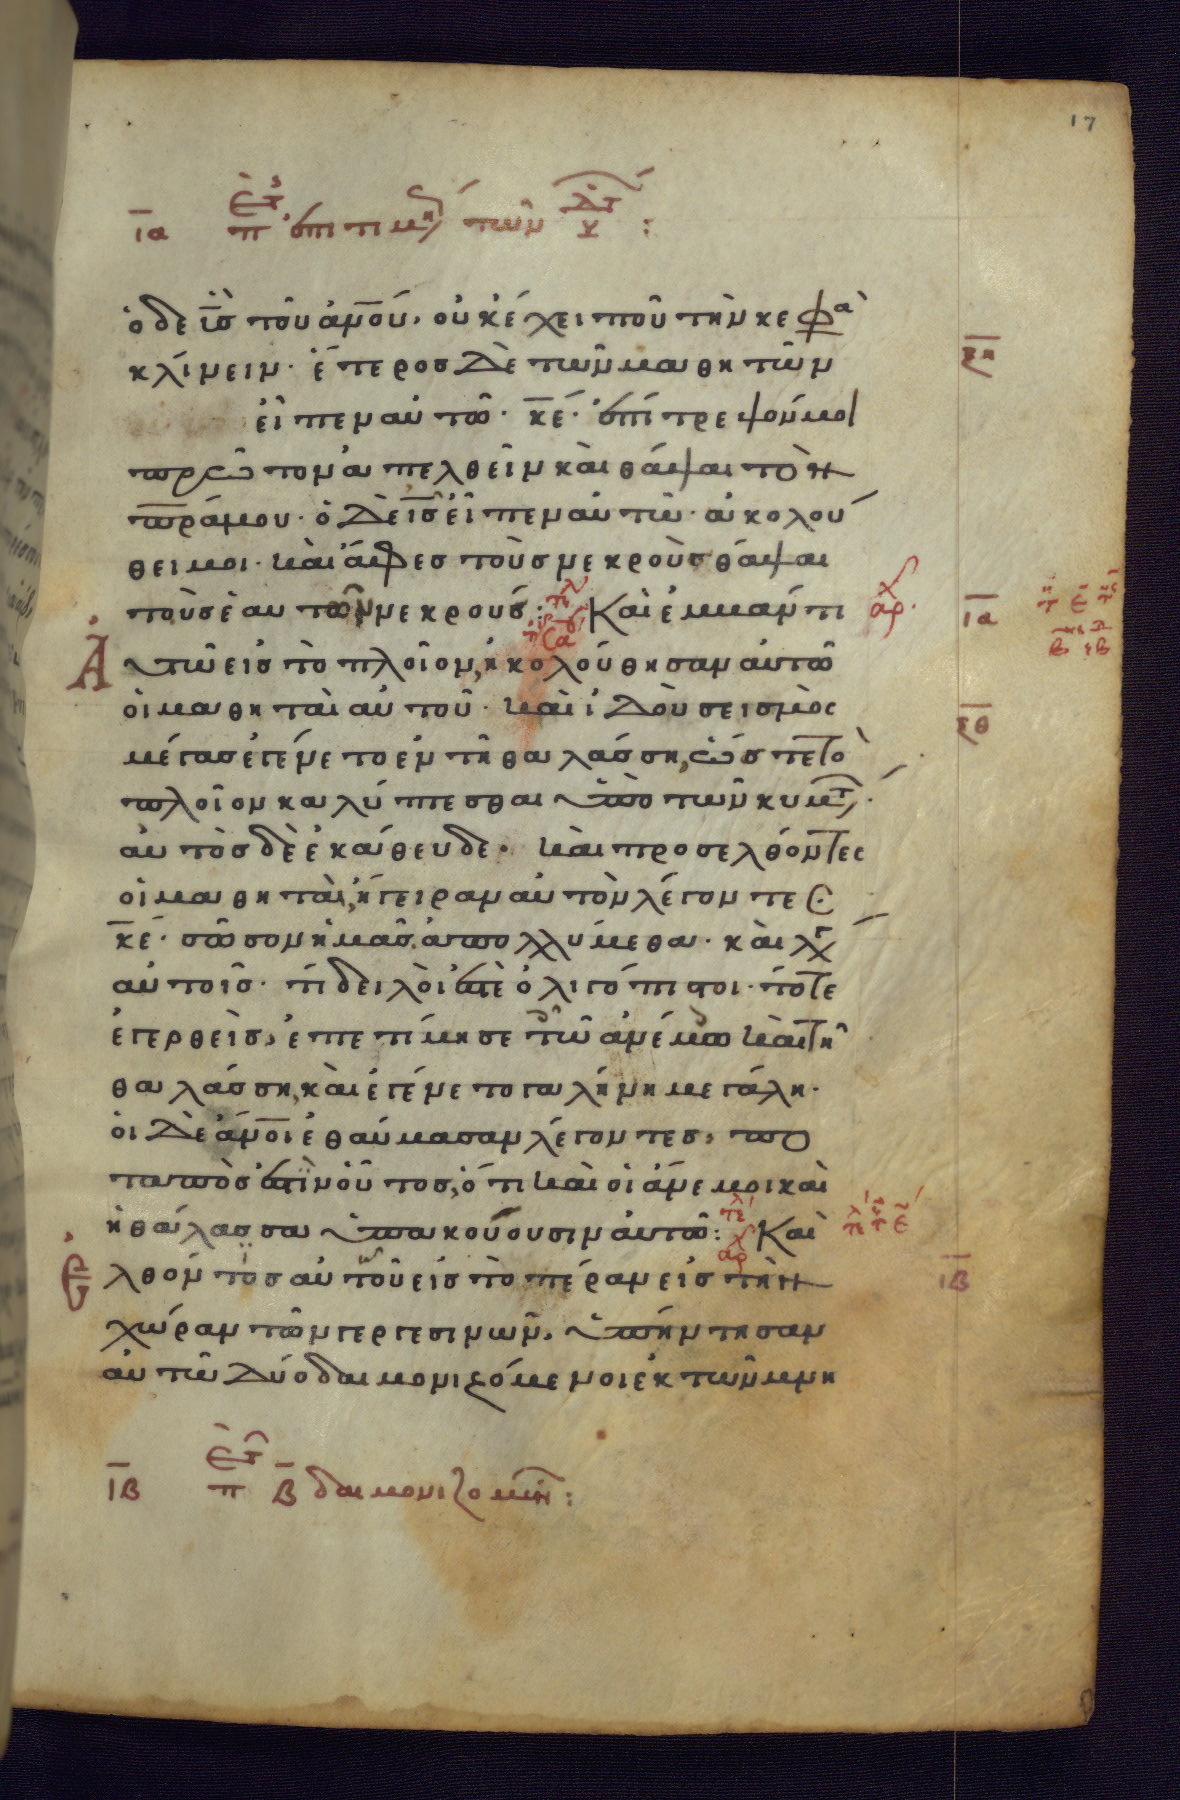 17
ια περὶ τῆς ἐπιτιμή τῶν ὑδάτ :
ὁ δὲ υἱ̅ς τοῦ ἀν̅ου, οὐκ ἔχει ποῦ τὴν κεφα
κλίνειν· ἕτερος δὲ τῶν μαθητῶν
εἶπεν αὐτῶ· κ̅ε· ἐπίτρεψόν μοι
πρῶτον ἀπελθεῖν καὶ θάψαι τὸν
π̅ρα μου· ὁ δὲ ι̅ς εἶπεν αὐτῶ· ἀκολού
θει μοι· καὶ ἄφες τοὺς νεκροὺς θάψαι
τοὺς ἑαυτῶν νεκρούς: Καὶ ἐμβάντι αρχ
ια
Αὐτῶ εἰς τὸ πλοῖον, ἠκολούθησαν αὐτῶ
οἱ μαθηταὶ αὐτοῦ· καὶ ἰδοὺ σεισμὸς
ξθ
μέγας ἐγένετο ἐν τῆ θαλάσση, ὥστε τὸ
πλοῖον καλύπτεσθαι ὑπὸ τῶν κυμάτ·
αὐτὸς δὲ ἐκάθευδε· καὶ προσελθόντες
οἱ μαθηταὶ, ἤγειραν αὐτὸν λέγοντες
κ̅ε· σῶσον ἡμᾶς, ἀπολλύμεθα· καὶ λέγ
αὐτοῖς· τί δειλοί ἐστε ὀλιγόπιστοι· τότε
ἐγερθεὶς, ἐπετίμησε τῶ ἀνέμω καὶ τῆ
θαλάσση, καὶ ἐγένετο γαλήνη μεγάλη·
οἱ δὲ ἄν̅οι ἐθαύμασαν λέγοντες, πο
ταπός ἐστιν οὗτος, ὅτι καὶ οἱ ἄνεμοι καὶ
ἡ θάλασσα ὑπακούουσιν αὐτῶ: Καὶ
ιβ
Ἐλθόντος αὐτοῦ εἰς τὸ πέραν εἰς τὴν
χώραν τῶν γεργεσινῶν, ὑπήντησαν
αὐτῶ δύο δαιμονιζόμενοι ἐκ τῶν μνη
ιβ περὶ τῶν β δαιμονιζομέν :